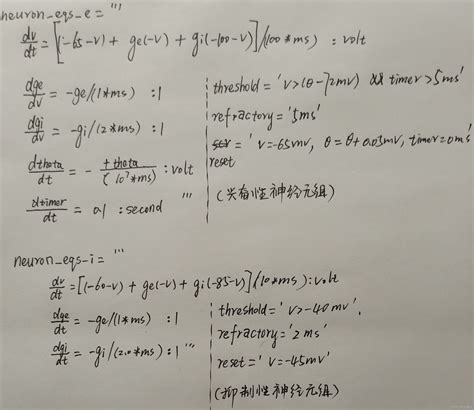 neuron_eqs_e = '''
dv/dt = [(-65-v) + ge(-v) + gi(-100-v)]/(100*ms) : volt
dge/dv = -ge/(1*ms) :1
dgi/dv = -gi/(2*ms) :1
dthota/dt = - thota/(10⁷*ms) : volt
dtimer/dt = 0.1 : second '''
threshold = 'v>(θ-72mv) && timer>5ms'
refractory = '5ms'
= 'v=-65mv, θ=θ+0.05mv, timer=0ms'
reset
(兴奋性神经元组)
neuron_eqs_i = '''
dv/dt = [(-60-v) + ge(-v) + gi(-85-v)]/(10*ms) : volt
dge/dt = -ge/(1*ms) :1
dgi/dt = -gi/(2.0*ms) :1 '''
threshold = 'v>-40mv'.
refractory = '2ms'
reset = 'v=-45mv'
(抑制性神经元组)